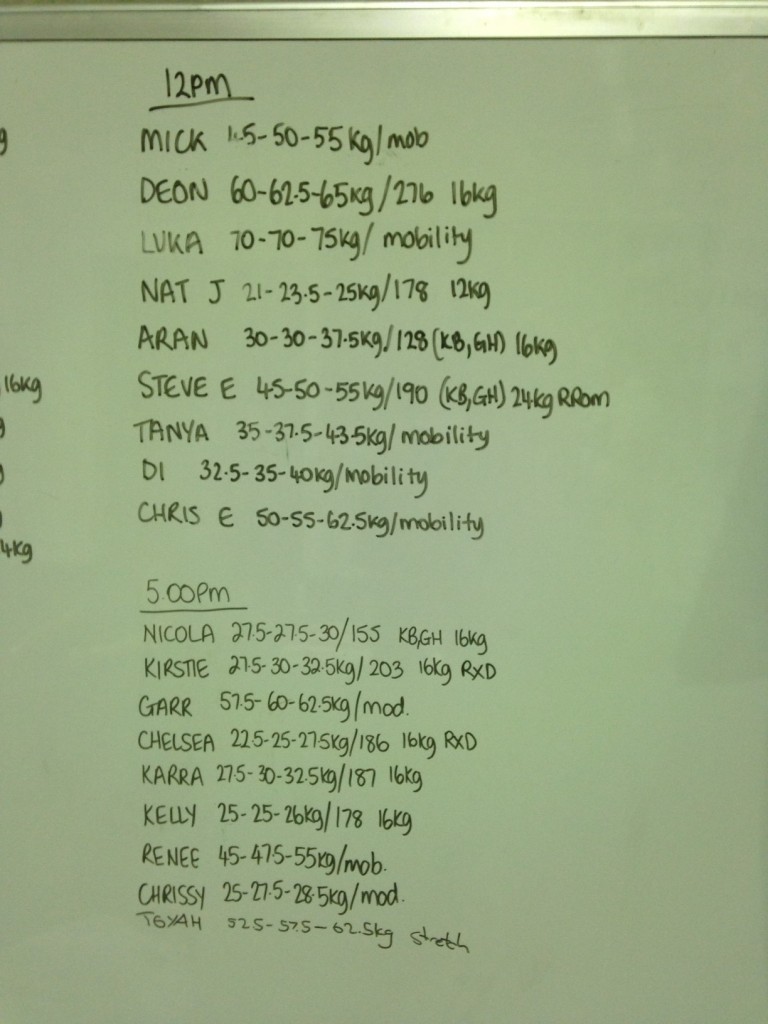 12pm
MICK -50-55kg/mob
DEON 60-62.5-65kg/276 16kg
LUKA 70-70-75kg/ mobility
NAT J 21-23.5-25kg/178 12kg
ARAN 30-30-37.5kg/128 (KB,GH) 16kg
16kg
STEVE E 45-50-55kg/190 (KB,GH) 24kg RRom
TANYA 35-37.5-43.5kg/mobility
DI 32.5-35-40kg/mobility
CHRIS E 50-55-62.5kg/mobility
4kg
5.00pm
NICOLA 27.5-27.5-30/155 KB,GH 16kg
KIRSTIE 27.5-30-32.5kg/203 16kg RXD
GARR 57.5-60-62.5kg/mod.
CHELSEA 22.5-25-27.5kg/186 16kg RXD
KARRA 27.5-30-32.5kg/187 16kg
KELLY 25-25-26kg/178 16kg
RENEE 45-47.5-55kg/mob.
CHRISSY 25-27.5-28.5kg/mod.
52.5-57.5-62.5kg stretch